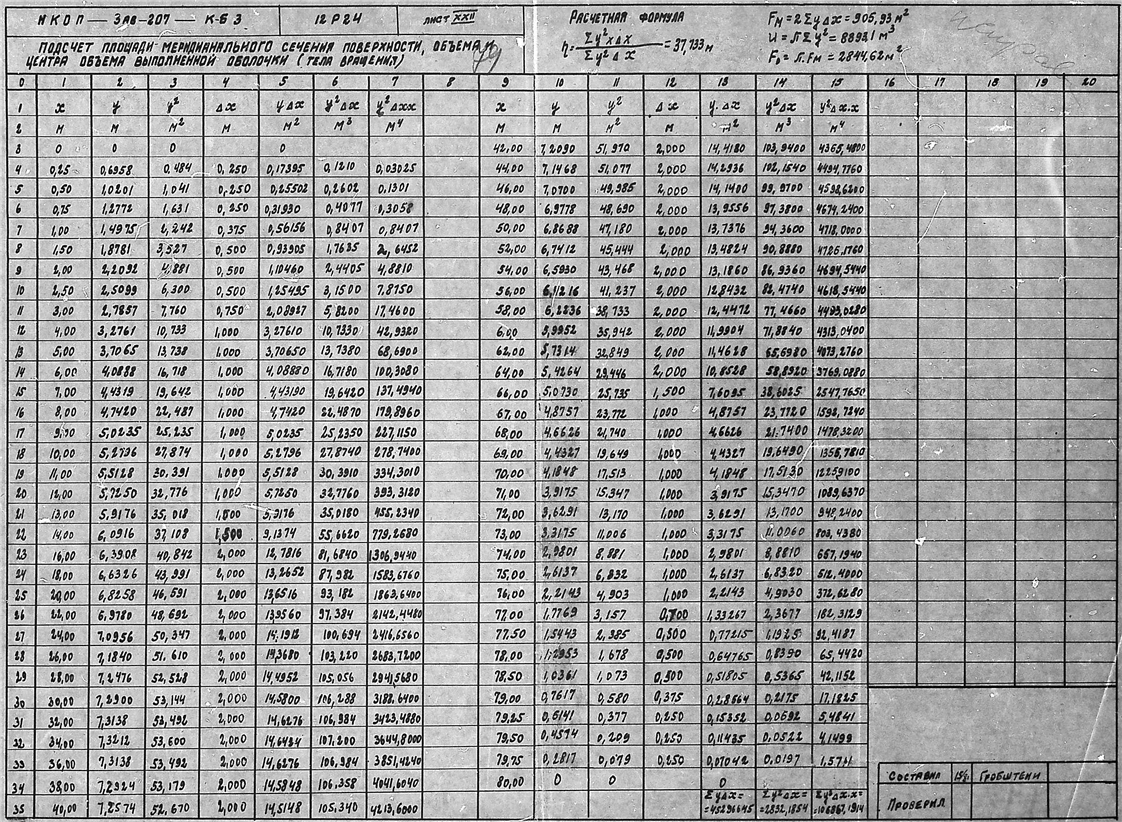 НКОП — Зав-207 — К-БЗ 12РГ4 ЛИСТ XXII
ПОДСЧЕТ ПЛОЩАДИ МЕРИДИАНАЛЬНОГО СЕЧЕНИЯ ПОВЕРХНОСТИ, ОБЪЕМА И
ЦЕНТРА ОБЪЕМА ВЫПОЛНЕННОЙ ОБОЛОЧКИ (ТЕЛА ВРАЩЕНИЯ)
79
РАСЧЕТНАЯ ФОРМУЛА
η = Σy²xΔx / Σy²Δx = 37,733 м
Fм = 2Σy Δx = 905,93 м²
U = ΛΣy² = 8893,1 м³
F₀ = Λ.Fм = 2844,62 м²
0 1 2 3 4 5 6 7 8 9 10 11 12 13 14 15 16 17 18 19 20
1 x y y² Δx yΔx y²Δx y²Δxx x y y² Δx y.Δx y²Δx y²Δx.x
2 м м м² м м² м³ м⁴ м м м² м м² м³ м⁴
3 0 0 0 0 42,00 7,2090 51,970 2,000 14,4180 103,9400 4365,4800
4 0,25 0,6958 0,484 0,250 0,17395 0,1210 0,03025 44,00 7,1468 51,077 2,000 14,2936 102,1540 4494,7760
5 0,50 1,0201 1,041 0,250 0,25502 0,2602 0,1301 46,00 7,0700 49,985 2,000 14,1400 99,9700 4598,6200
6 0,75 1,2772 1,631 0,250 0,31930 0,4077 0,3058 48,00 6,9778 48,690 2,000 13,9556 97,3800 4674,2400
7 1,00 1,4975 2,242 0,375 0,56156 0,8407 0,8407 50,00 6,8688 47,180 2,000 13,7376 94,3600 4718,0000
8 1,50 1,8781 3,527 0,500 0,93905 1,7635 2,6452 52,00 6,7412 45,444 2,000 13,4824 90,8880 4726,1760
9 2,00 2,2092 4,881 0,500 1,10460 2,4405 4,8810 54,00 6,5930 43,468 2,000 13,1860 86,9360 4694,5440
10 2,50 2,5099 6,300 0,500 1,25495 3,1500 7,8750 56,00 6,4216 41,237 2,000 12,8432 82,4740 4618,5440
11 3,00 2,7857 7,760 0,750 2,08927 5,8200 17,4600 58,00 6,2236 38,733 2,000 12,4472 77,4660 4493,0280
12 4,00 3,2761 10,733 1,000 3,27610 10,7330 42,9320 6,00 5,9952 35,942 2,000 11,9904 71,8840 4313,0400
13 5,00 3,7065 13,738 1,000 3,70650 13,7380 68,6900 62,00 5,7314 32,849 2,000 11,4628 65,6980 4073,2760
14 6,00 4,0888 16,718 1,000 4,08880 16,7180 100,3080 64,00 5,4264 29,446 2,000 10,8528 58,8920 3769,0880
15 7,00 4,4319 19,642 1,000 4,43190 19,6420 137,4940 66,00 5,0730 25,735 1,500 7,6095 38,6025 2547,7650
16 8,00 4,7420 22,487 1,000 4,7420 22,4870 179,8960 67,00 4,8757 23,772 1,000 4,8757 23,7720 1592,7240
17 9,00 5,0235 25,235 1,000 5,0235 25,2350 227,1150 68,00 4,6626 21,740 1,000 4,6626 21,7400 1478,3200
18 10,00 5,2736 27,874 1,000 5,2796 27,8740 278,7400 69,00 4,4327 19,649 1,000 4,4327 19,6490 1355,7810
19 11,00 5,5128 30,391 1,000 5,5128 30,3910 334,3010 70,00 4,1848 17,513 1,000 4,1848 17,5130 1225,9100
20 12,00 5,7250 32,776 1,000 5,7250 32,7760 393,3120 71,00 3,9175 15,347 1,000 3,9175 15,3470 1089,6370
21 13,00 5,9176 35,018 1,500 5,9176 35,0180 455,2340 72,00 3,6291 13,170 1,000 3,6291 13,1700 948,2400
22 14,00 6,0916 37,108 1,500 9,1374 55,6620 779,2680 73,00 3,3175 11,006 1,000 3,3175 11,0060 803,4380
23 16,00 6,3908 40,842 2,000 12,7816 81,6840 1306,9440 74,00 2,9801 8,881 1,000 2,9801 8,8810 657,1940
24 18,00 6,6326 43,991 2,000 13,2652 87,982 1583,6760 75,00 2,6137 6,832 1,000 2,6137 6,8320 512,4000
25 20,00 6,8258 46,591 2,000 13,6516 93,182 1863,6400 76,00 2,2143 4,903 1,000 2,2143 4,9030 372,6280
26 22,00 6,9780 48,692 2,000 13,9560 97,384 2142,4480 77,00 1,7769 3,157 0,700 1,33267 2,3677 182,3129
27 24,00 7,0956 50,347 2,000 14,1912 100,694 2416,6560 77,50 1,5443 2,385 0,500 0,77215 1,1925 92,4187
28 26,00 7,1840 51,610 2,000 14,3680 103,220 2683,7200 78,00 1,2953 1,678 0,500 0,64765 0,8390 65,4420
29 28,00 7,2476 52,528 2,000 14,4952 105,056 2941,5680 78,50 1,0361 1,073 0,500 0,51805 0,5365 42,1152
30 30,00 7,2900 53,144 2,000 14,5800 106,288 3188,6400 79,00 0,7617 0,580 0,375 0,28564 0,2175 17,1825
31 32,00 7,3138 53,492 2,000 14,6276 106,984 3423,4880 79,25 0,6141 0,377 0,250 0,15352 0,0692 5,4841
32 34,00 7,3212 53,600 2,000 14,6424 107,200 3644,8000 79,50 0,4574 0,209 0,250 0,11435 0,0522 4,1499
33 36,00 7,3138 53,492 2,000 14,6276 106,984 3851,4240 79,75 0,2817 0,079 0,250 0,07042 0,0197 1,5711
34 38,00 7,2924 53,179 2,000 14,5848 106,358 4041,6040 80,00 0 0 0
35 40,00 7,2574 52,670 2,000 14,5148 105,340 4213,6000 ΣyΔx= Σy²Δx= Σy²Δx.x=
=452,96645 =2832,1854 =106867,1914
СОСТАВИЛ ГРОБШТЕЙН
ПРОВЕРИЛ